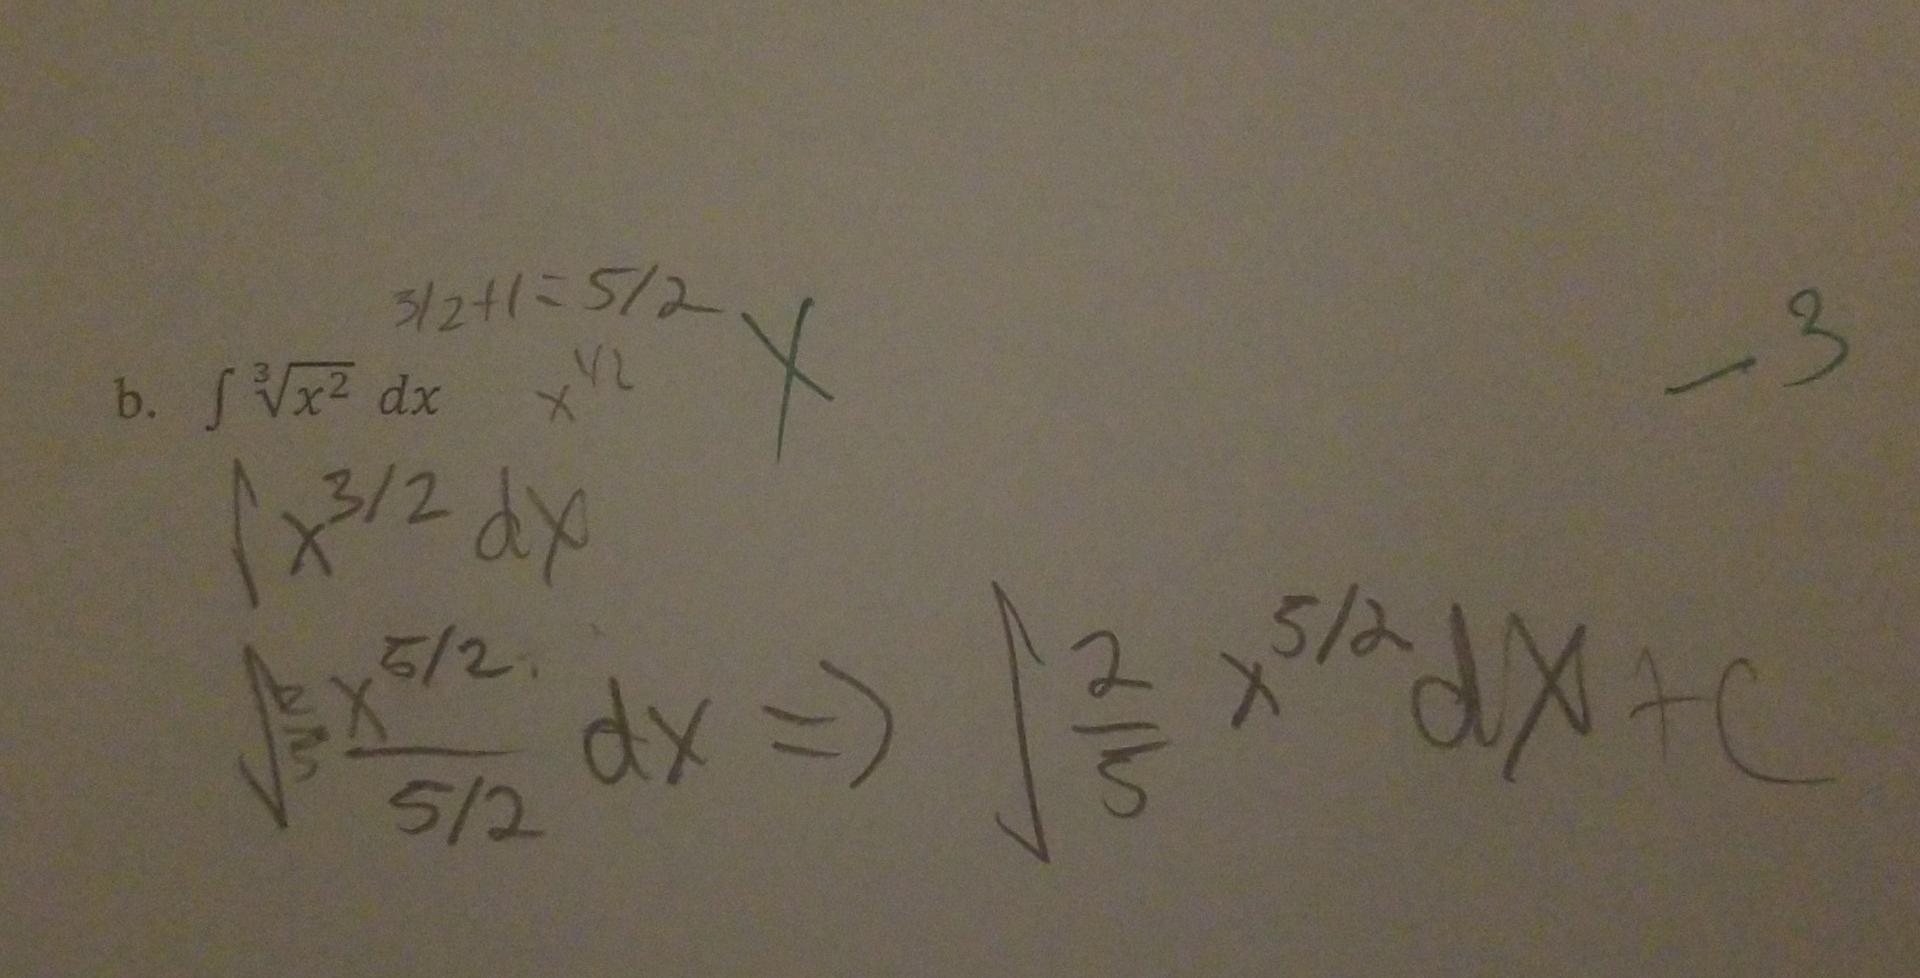 3/2+1=5/2
b. ∫ ∛x² dx x^1/2 X -3
∫ x^3/2 dx
∫ x^5/2 / 5/2 dx => ∫ 2/5 x^5/2 dx + C